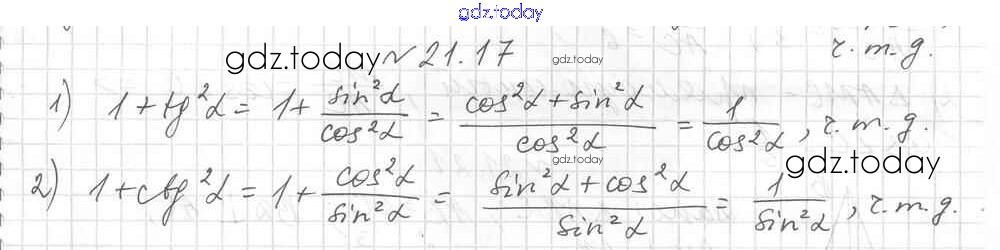 gdz.today
gdz.today № 21.17 gdz.today ч.т.д.
1) 1 + tg²α = 1 + sin²α/cos²α = (cos²α + sin²α)/cos²α = 1/cos²α, ч.т.д.
gdz.today gdz.today
2) 1 + ctg²α = 1 + cos²α/sin²α = (sin²α + cos²α)/sin²α = 1/sin²α, ч.т.д.